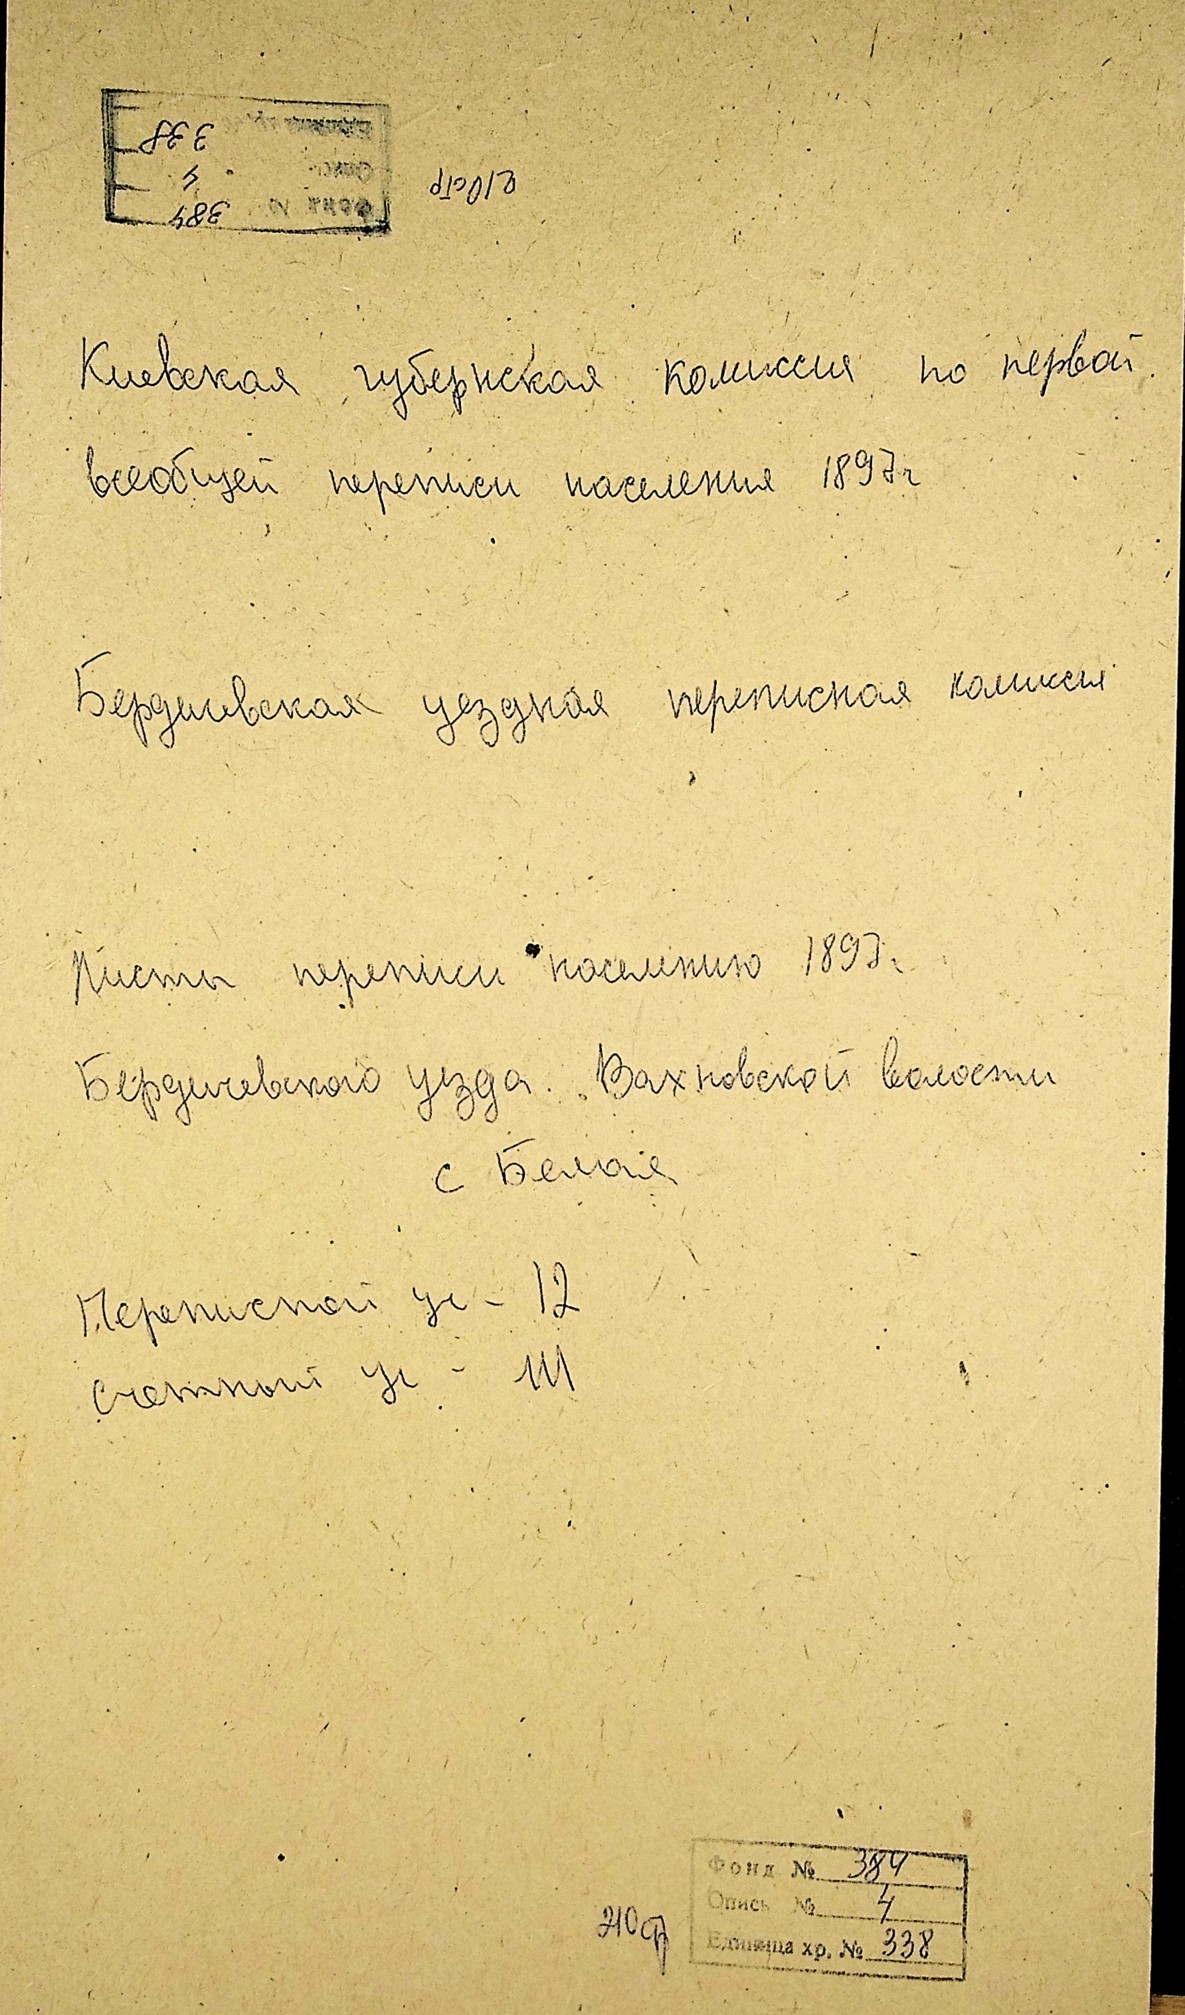 Фонд № 384
Опись 4
Единица хр. 338
210 стр
Киевская губернская комиссия по первой
всеобщей переписи населения 1897 г
Бердичевская уездная переписная комиссия
Листы переписи населению 1897 г.
Бердичевского уезда. Вахновской волости
с Белая
Переписной уч - 12
Счетный уч - III
210 стр
Фонд № 384
Опись № 4
Единица хр. № 338